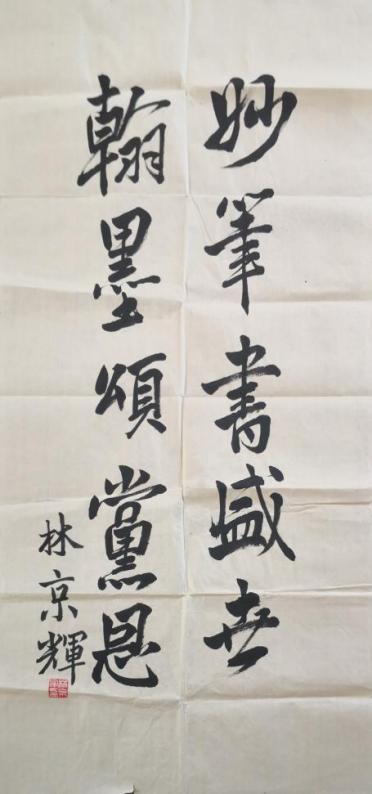 妙筆書盛世
翰墨頌黨恩
林京輝